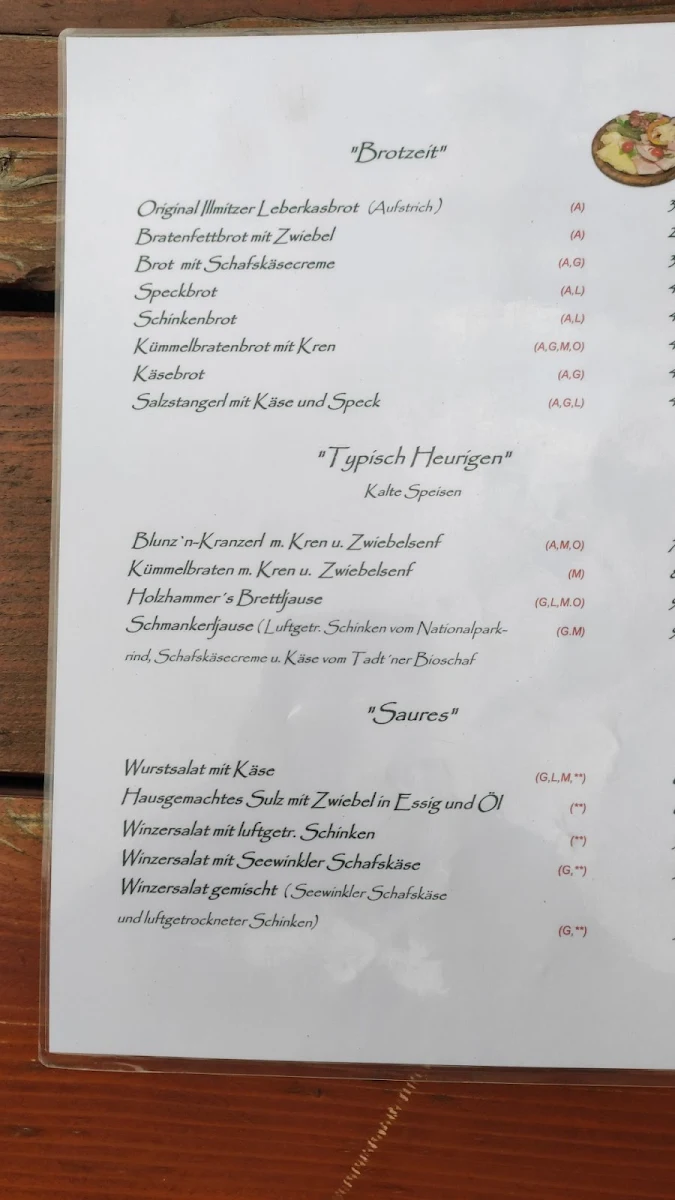 "Brotzeit"
Original Illmitzer Leberkasbrot (Aufstrich) (A)
Bratenfettbrot mit Zwiebel (A)
Brot mit Schafskäsecreme (A,G)
Speckbrot (A,L)
Schinkenbrot (A,L)
Kümmelbratenbrot mit Kren (A,G,M,O)
Käsebrot (A,G)
Salzstangerl mit Käse und Speck (A,G,L)
"Typisch Heurigen"
Kalte Speisen
Blunz`n-Kranzerl m. Kren u. Zwiebelsenf (A,M,O)
Kümmelbraten m. Kren u. Zwiebelsenf (M)
Holzhammer´s Brettljause (G,L,M.O)
Schmankerljause (Luftgetr. Schinken vom Nationalpark- (G.M)
rind, Schafskäsecreme u. Käse vom Tadt´ner Bioschaf
"Saures"
Wurstsalat mit Käse (G,L,M,**)
Hausgemachtes Sulz mit Zwiebel in Essig und Öl (**)
Winzersalat mit luftgetr. Schinken (**)
Winzersalat mit Seewinkler Schafskäse (G,**)
Winzersalat gemischt (Seewinkler Schafskäse
und luftgetrockneter Schinken) (G,**)